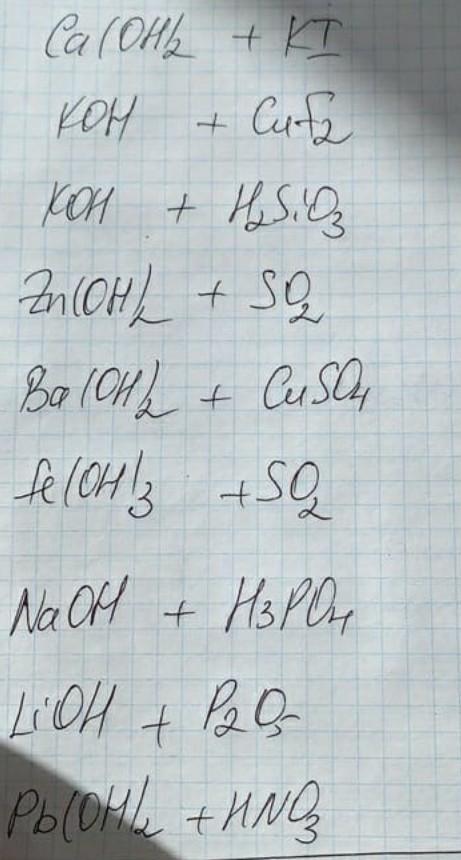 Ca(OH)₂ + KI
KOH + CuF₂
KOH + H₂SiO₃
Zn(OH)₂ + SO₂
Ba(OH)₂ + CuSO₄
Fe(OH)₃ + SO₂
NaOH + H₃PO₄
LiOH + P₂O₅
Pb(OH)₂ + HNO₃